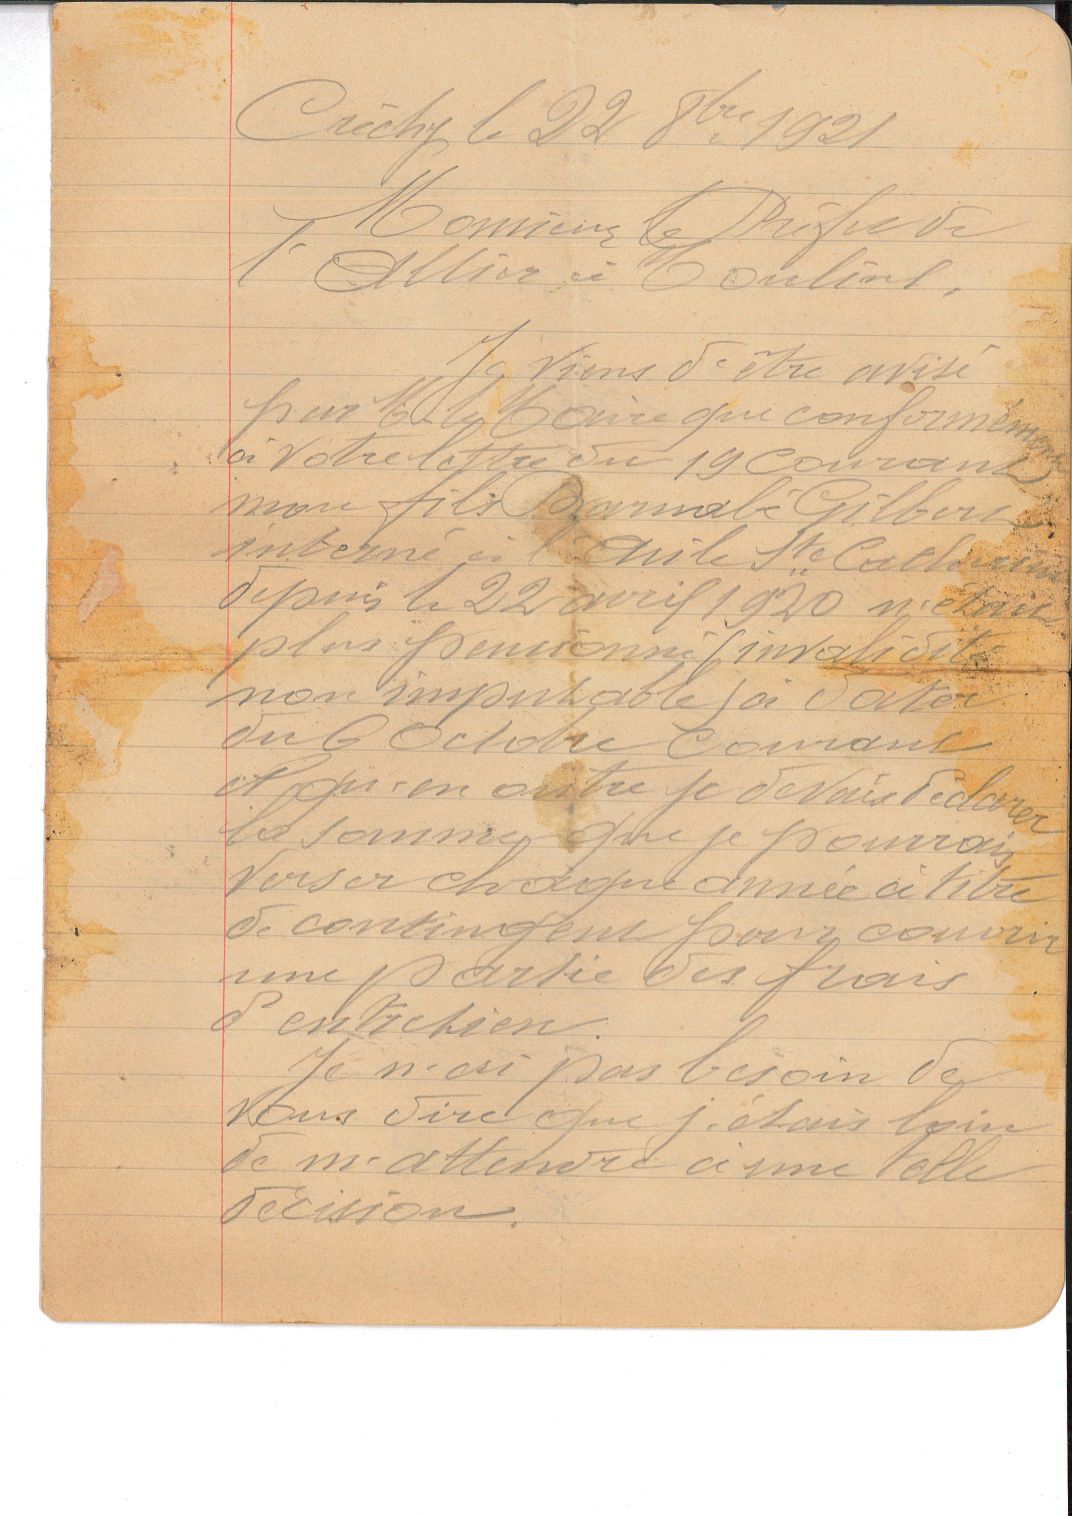 Créchy le 22 8bre 1921
Monsieur le Préfet de
l'Allier à Moulins.
Je viens d'être avisé
par M. le Maire que conformément
à votre lettre du 19 courant
mon fils Barnabé Gilbert
interné à l'Asile Ste Catherine
depuis le 22 avril 1920 n'était
plus pensionné (invalidité
non imputable) à dater
du 6 Octobre courant
et qu'en outre je devais déclarer
la somme que je pourrais
verser chaque année à titre
de contingent pour couvrir
une partie des frais
d'entretien.
Je n'ai pas besoin de
vous dire que j'étais loin
de m'attendre à une telle
décision.